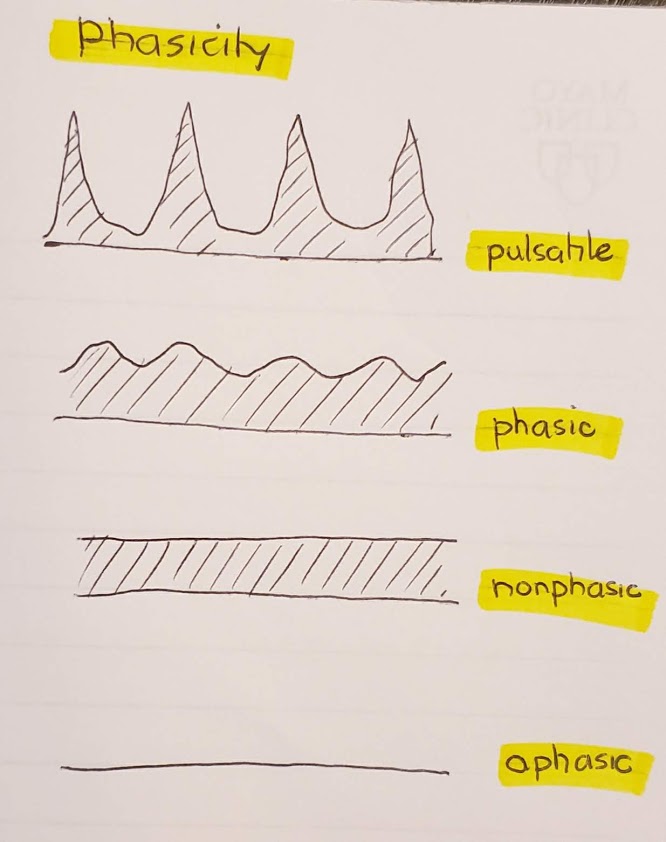 Phasicity
pulsatile
phasic
nonphasic
aphasic
MAYO
CLINIC